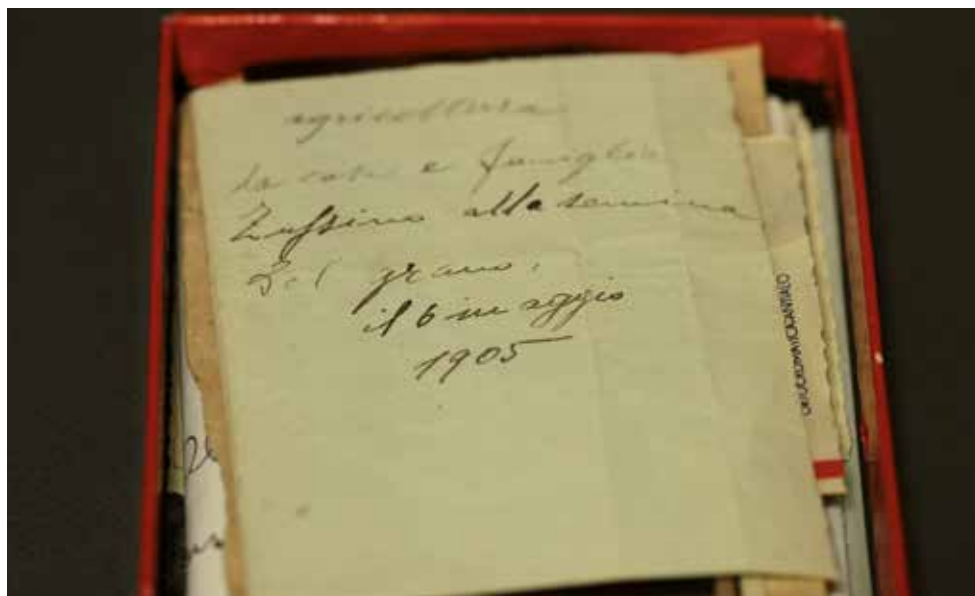 agricoltura
da casa e famiglia
Zuffino alla semina
Del grano,
il 6 maggio
1905